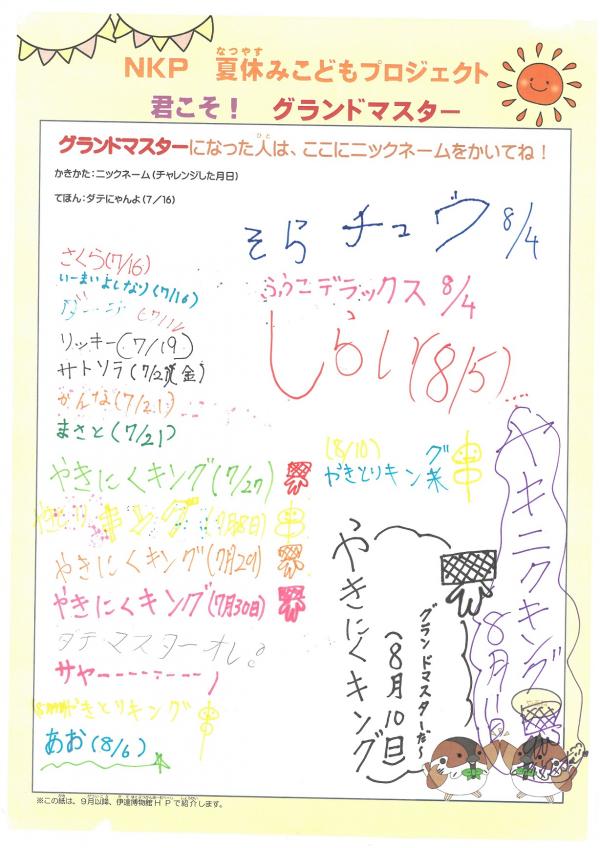 NKP 夏休みこどもプロジェクト
なつやす
君こそ! グランドマスター
グランドマスターになった人は、ここにニックネームをかいてね!
ひと
かきかた:ニックネーム(チャレンジした月日)
てほん:ダテにゃんよ(7/16)
そらチュウ 8/4
さくら(7/16)
いーまいよしなり(7/16)
ふうこデラックス 8/4
リッキー(7/19)
しらい(8/5)
サトソラ(7/21(金)
かんな(7/21)
まさと(7/21)
やきにくキング(7/27)
(8/10)
やきとりキング
ヤキニクキング
やきにくキング(7月29)
やきにくキング(7月30日)
やきにくキング
(8月10日
グランドマスターだ〜
ダテマスターオレ。
サヤー
やきとりキング
あお(8/6)
※この紙は、9月以降、伊達博物館HPで紹介します。